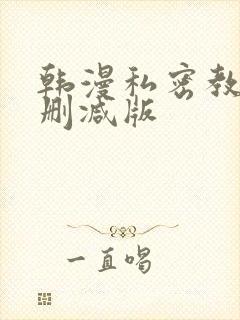 韩漫私密教
删减版
一直唱